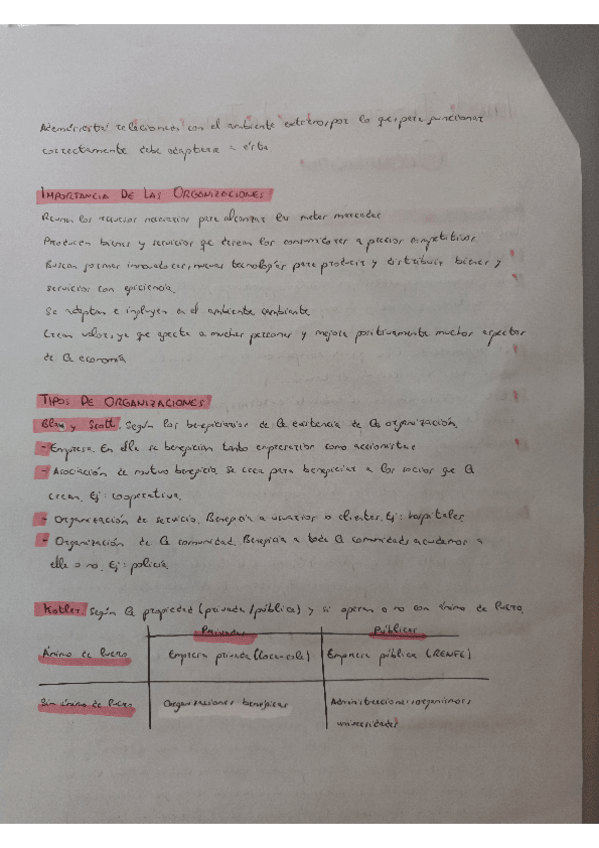 Además está relacionada con el ambiente externo, por lo que, para funcionar
correctamente debe adaptarse a ésta.
IMPORTANCIA DE LAS ORGANIZACIONES
Reúnen los recursos necesarios para alcanzar las metas marcadas
Producen bienes y servicios que desean los consumidores a precios competitivos.
Buscan formas innovadoras, nuevas tecnologías para producir y distribuir bienes y
servicios con eficiencia.
Se adaptan e influyen en el ambiente cambiante.
Crean valor, ya que afecta a muchas personas y mejora positivamente muchos aspectos
de la economía
TIPOS DE ORGANIZACIONES
Blau y Scott. Según los beneficiarios de la existencia de la organización.
- Empresa. En ella se benefician tanto empresarios como accionistas
- Asociación de mutuo beneficio. Se crea para beneficiar a los socios que la
crean. Ej: cooperativa.
- Organización de servicio. Beneficia a usuarios o clientes. Ej: hospitales
- Organización de la comunidad. Beneficia a toda la comunidad, acudamos a
ella o no. Ej: policía.
Kotler. Según la propiedad (privada/pública) y si operan o no con ánimo de lucro.
Privadas Públicas
Ánimo de lucro Empresa privada (Coca-cola) Empresa pública (RENFE)
Sin ánimo de lucro Organizaciones benéficas Administraciones, organismos,
universidades